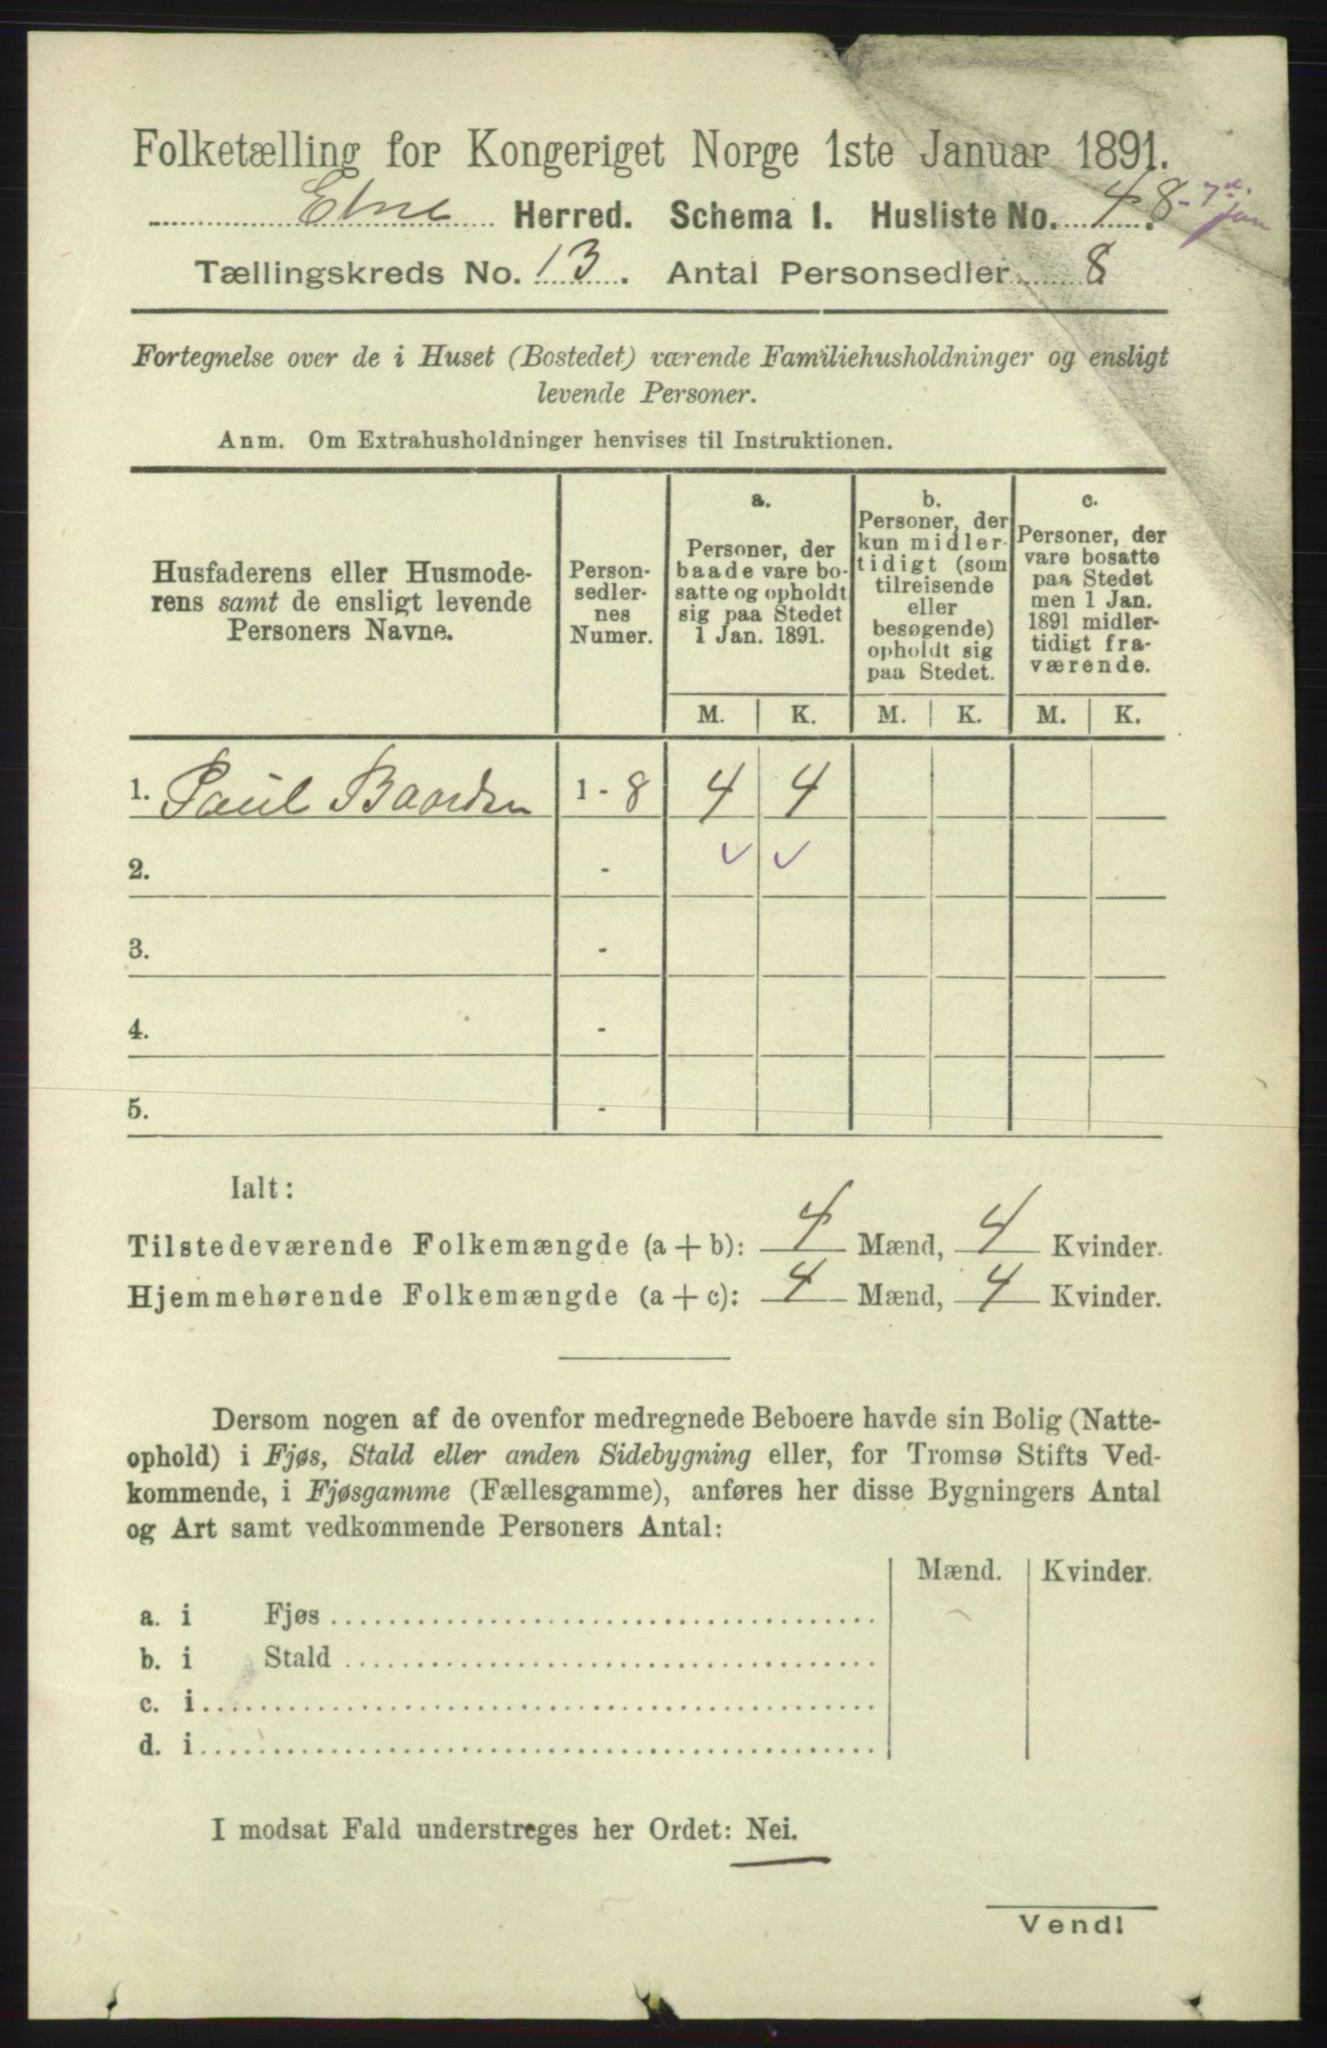 Folketælling for Kongeriget Norge 1ste Januar 1891.
Etne Herred. Schema 1. Husliste No. 48. 7d. Jan
Tællingskreds No. 13. Antal Personsedler 8
Fortegnelse over de i Huset (Bostedet) værende Familiehusholdninger og ensligt
levende Personer.
Anm. Om Extrahusholdninger henvises til Instruktionen.
Husfaderens eller Husmode-
rens samt de ensligt levende
Personers Navne.
Person-
sedler-
nes
Numer.
a.
Personer, der
baade vare bo-
satte og opholdt
sig paa Stedet
1 Jan. 1891.
b.
Personer, der
kun midler-
tidigt (som
tilreisende
eller
besøgende)
opholdt sig
paa Stedet.
c.
Personer, der
vare bosatte
paa Stedet
men 1 Jan.
1891 midler-
tidigt fra-
værende.
M. K. M. K. M. K.
1. Paul Baardsen 1 - 8 4 4
2. - ✓ ✓
3. -
4. -
5. -
Ialt:
Tilstedeværende Folkemængde (a + b): 4 Mænd, 4 Kvinder.
Hjemmehørende Folkemængde (a + c): 4 Mænd, 4 Kvinder.
Dersom nogen af de ovenfor medregnede Beboere havde sin Bolig (Natte-
ophold) i Fjøs, Stald eller anden Sidebygning eller, for Tromsø Stifts Ved-
kommende, i Fjøsgamme (Fællesgamme), anføres her disse Bygningers Antal
og Art samt vedkommende Personers Antal:
Mænd. Kvinder.
a. i Fjøs
b. i Stald
c. i
d. i
I modsat Fald understreges her Ordet: Nei.
Vend!